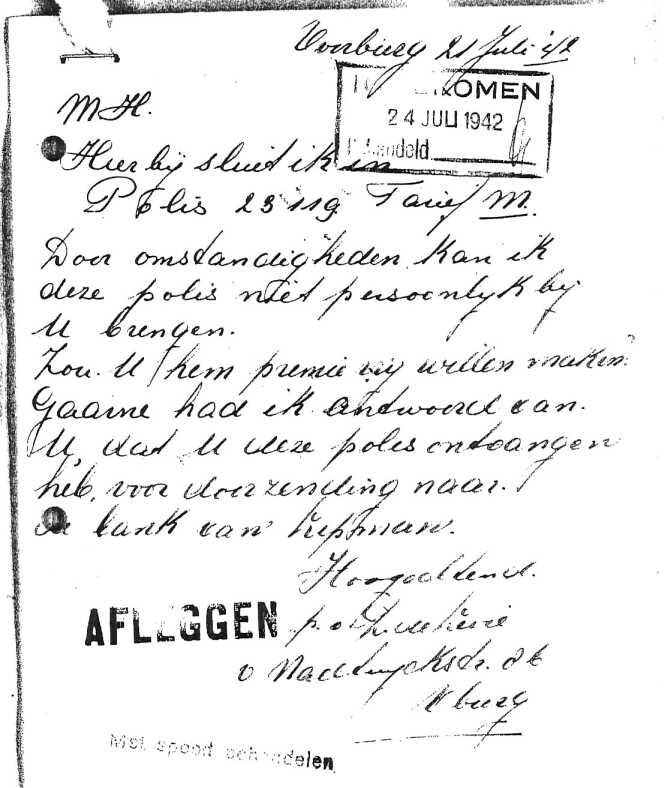 Voorburg 21 Juli '42
INGEKOMEN
24 JULI 1942
Behandeld
M.H.
Hierbij sluit ik in
Polis 23119 Tarief M.
Door omstandigheden kan ik
deze polis niet persoonlyk by
U brengen.
Zou U hem premie vry willen maken.
Gaarne had ik antwoord van.
U, dat U deze polis ontvangen
heb, voor doorzending naar.
de bank van Lippman.
Hoogachtend.
AFLEGGEN
p.o.
str. 86
V burg
Met spoed behandelen